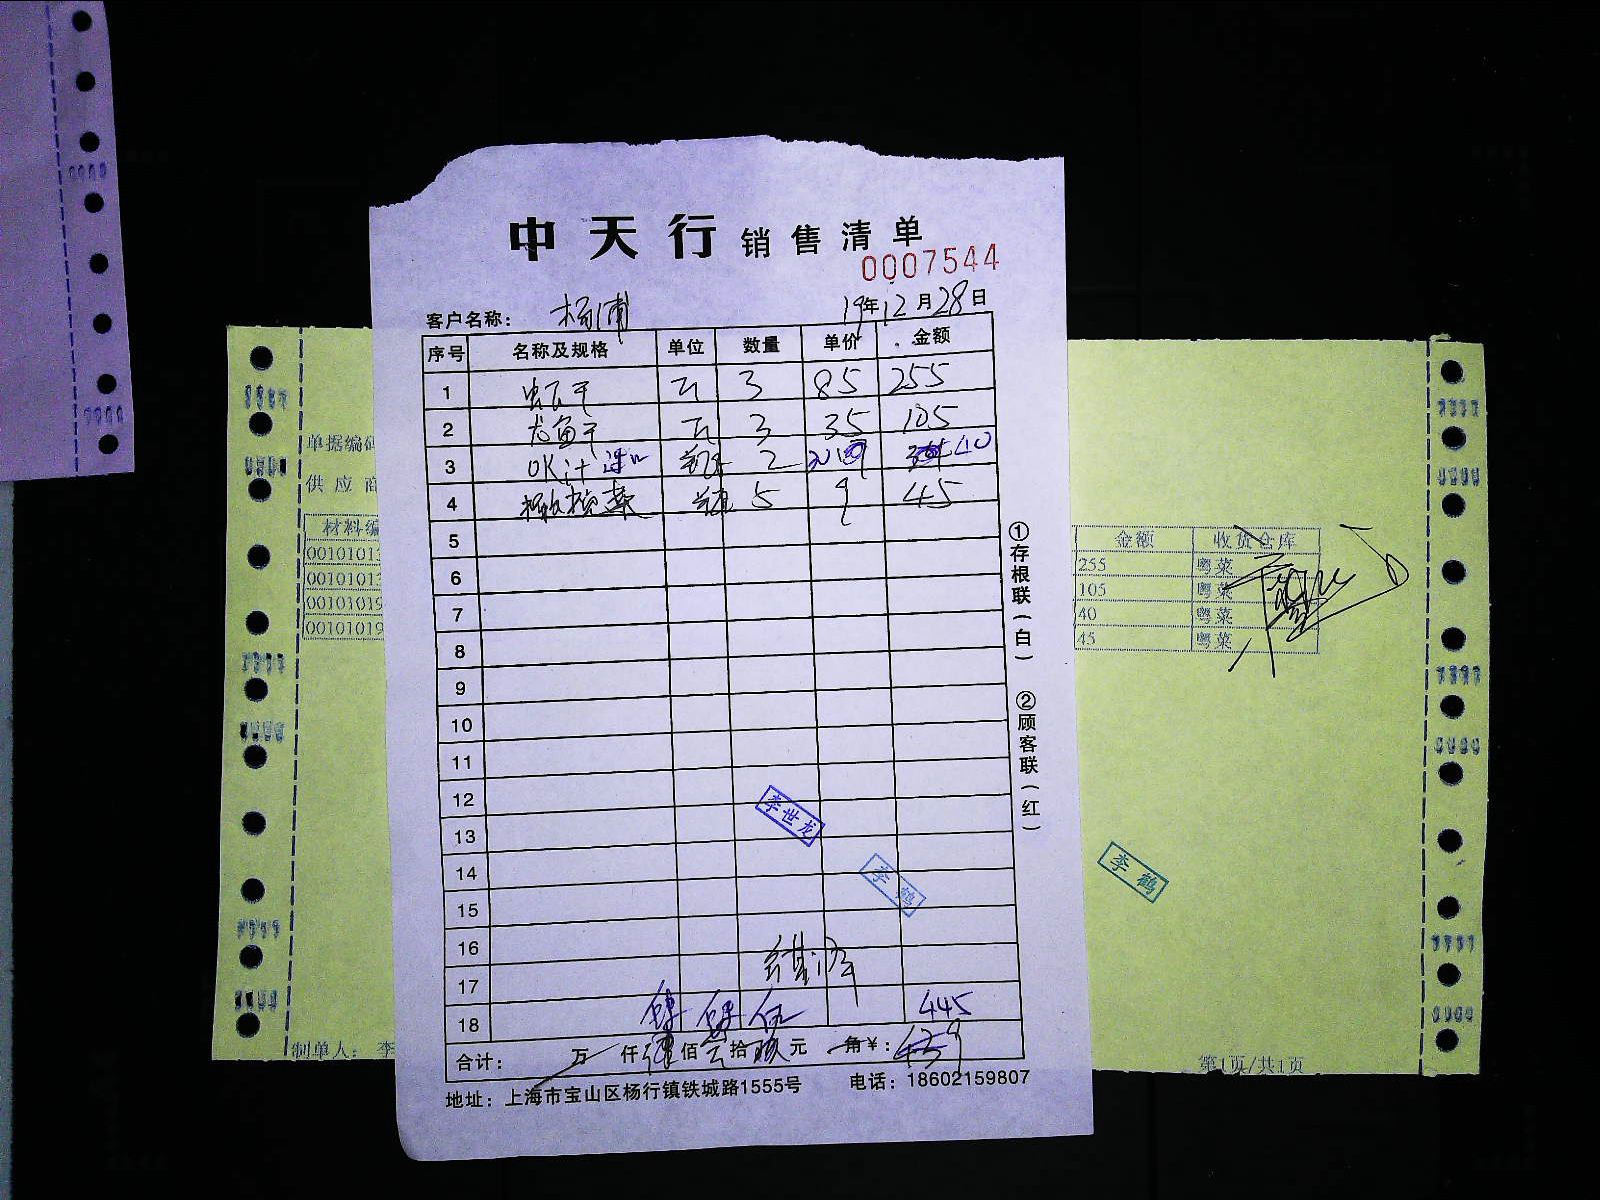 中天行 销售清单
0007544
客户名称： 杨浦 19年12月28日
序号 名称及规格 单位 数量 单价 金额
1 虾干 斤 3 85 255
2 尤鱼干 斤 3 35 105
3 OK汁 2 40
4 橄榄菜 5 9 45
5
6
7
8
9
10
11
12
13
14
15
16
17
18 肆 肆 伍 445
合计： 万 仟 佰 拾 元 角 ¥：
地址：上海市宝山区杨行镇铁城路1555号 电话：18602159807
①存根联（白） ②顾客联（红）
李世龙
李鹤
单据编码
供应商
材料编
00101013
00101013
00101019
00101019
制单人： 李
金额 收货仓库
255 粤菜
105 粤菜
40 粤菜
45 粤菜
李鹤
第1页/共1页